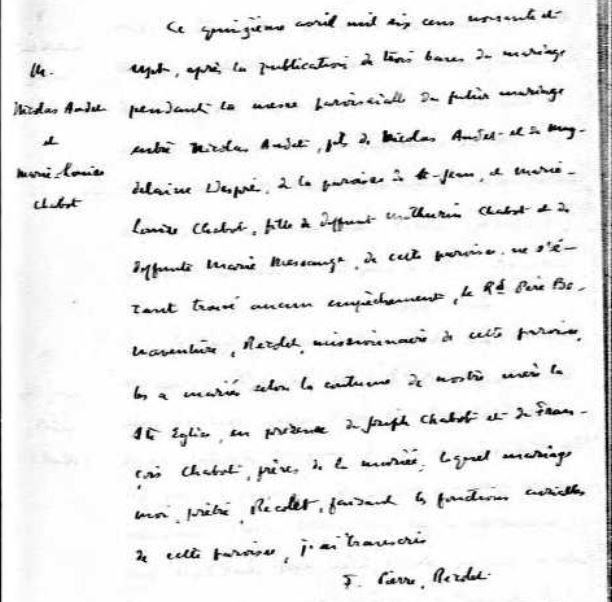 Ce quinzième avril mil six cens nonante et
M.
Nicolas Audet
et
Marie-Louise
Chabot
sept, après la publication de trois bancs de mariage
pendant la messe paroissialle du futur mariage
entre Nicolas Audet, fils de Nicolas Audet et de Mag-
delaine Després, de la paroisse de St-Jean, et Marie-
Louise Chabot, fille de deffunt Mathurin Chabot et de
deffunte Marie Mesange, de cette paroisse, ne s'é-
tant trouvé aucun empêchement, le Rd Père Bo-
naventure, Recolet, missionnaire de cette paroisse,
les a mariés selon la coutume de nostre mère la
Ste Eglise, en présence de Joseph Chabot et de Fran-
çois Chabot, frères de la mariée, lequel mariage
moi, prêtre, Récolet, faisant les fonctions curialles
de cette paroisse, j'ai transcris
F. Pierre, Recolet